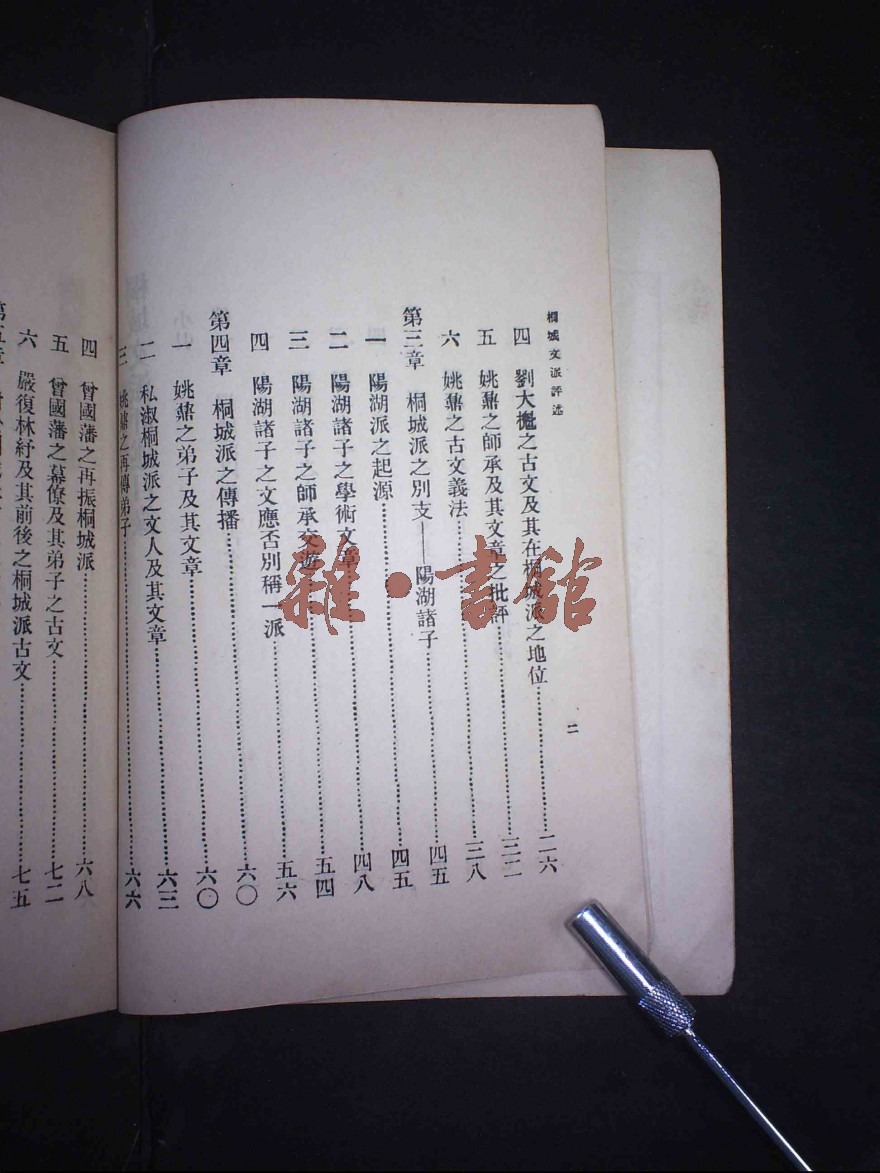 桐城文派評述
二
四 劉大櫆之古文及其在桐城派之地位……二六
五 姚鼐之師承及其文章之批評……三二
六 姚鼐之古文義法……三八
第三章 桐城派之別支——陽湖諸子……四五
一 陽湖派之起源……四五
二 陽湖諸子之學術文章……四八
三 陽湖諸子之師承交遊……五四
四 陽湖諸子之文應否別稱一派……五六
第四章 桐城派之傳播……六〇
一 姚鼐之弟子及其文章……六〇
二 私淑桐城派之文人及其文章……六三
三 姚鼐之再傳弟子……六六
四 曾國藩之再振桐城派……六八
五 曾國藩之幕僚及其弟子之古文……七二
六 嚴復林紓及其前後之桐城派古文……七五
雜·書館